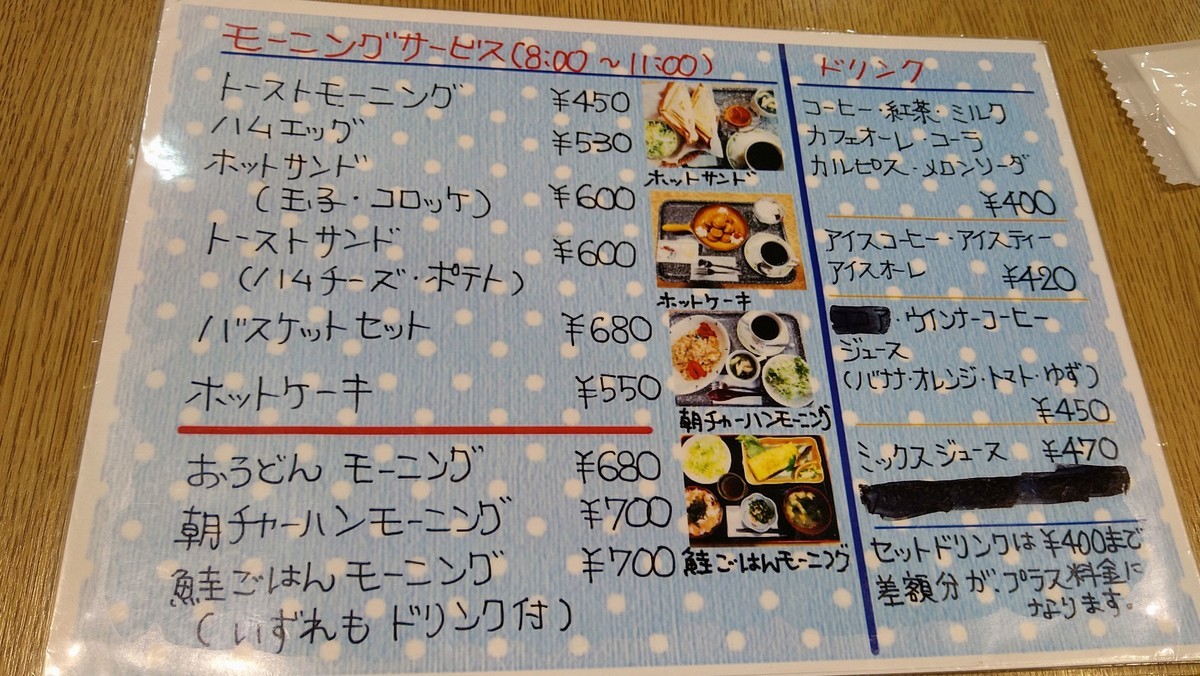 モーニングサービス(8:00～11:00)
トーストモーニング ¥450
ハムエッグ ¥530
ホットサンド
(玉子・コロッケ) ¥600
トーストサンド ¥600
(ハムチーズ・ポテト)
バスケットセット ¥680
ホットケーキ ¥550
おうどん モーニング ¥680
朝チャーハンモーニング ¥700
鮭ごはんモーニング ¥700
(いずれも ドリンク付)
ホットサンド
ホットケーキ
朝チャーハンモーニング
鮭ごはんモーニング
ドリンク
コーヒー・紅茶・ミルク
カフェオーレ・コーラ
カルピス・メロンソーダ
¥400
アイスコーヒー・アイスティー
アイスオーレ ¥420
・ウインナーコーヒー
ジュース
(バナナ・オレンジ・トマト・ゆず)
¥450
ミックスジュース ¥470
セットドリンクは¥400まで
差額分が、プラス料金に
なります。